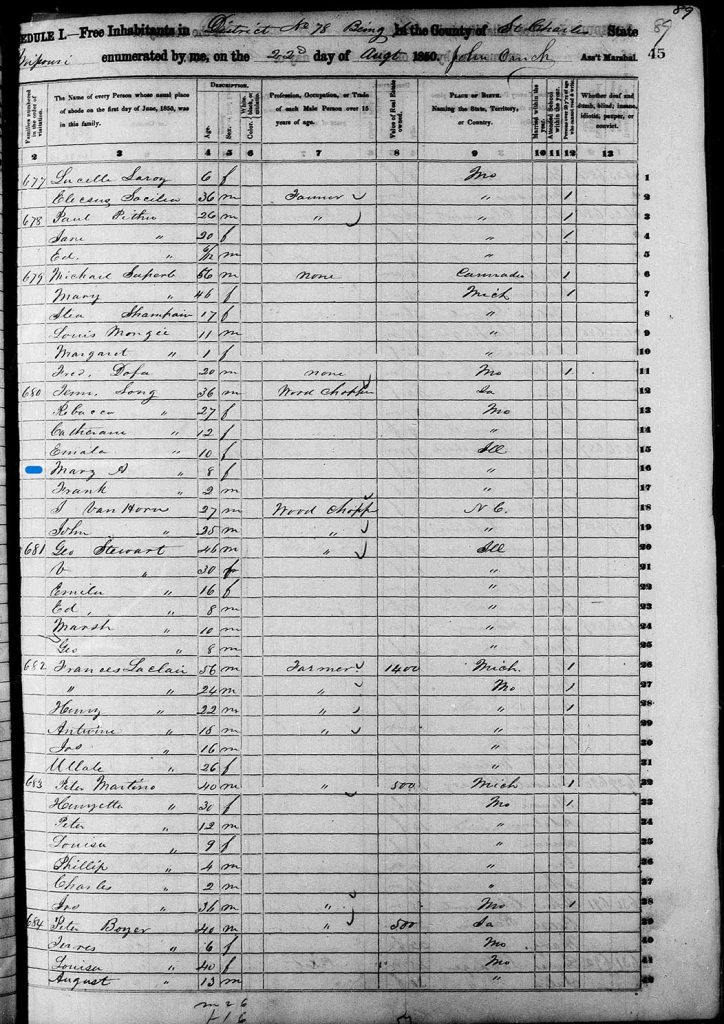 89
89
EDULE I.—Free Inhabitants in District No 78 Being in the County of St Charles State
enumerated by me, on the 22d day of Augt 1850. John Ass't Marshal. 45
Families numbered in the order of visitation.
The Name of every Person whose usual place of abode on the first day of June, 1850, was in this family.
DESCRIPTION.
Age.
Sex.
Color.
Profession, Occupation, or Trade of each Male Person over 15 years of age.
Value of Real Estate owned.
PLACE OF BIRTH. Naming the State, Territory, or Country.
Married within the year.
Attended School within the year.
Persons over 20 y'rs of age who cannot read & write.
Whether deaf and dumb, blind, insane, idiotic, pauper, or convict.
2 3 4 5 6 7 8 9 10 11 12 13
677 Lucelle 6 f Mo 1
36 m Farmer " 1 2
678 Paul 26 m " " 1 3
Jane " 20 f " 1 4
Ed. " 6/12 m " 5
679 Michael 56 m none Cannada 1 6
Mary " 46 f Mich 1 7
17 f " 8
Louis 11 m " 9
Margaret " 1 f " 10
Fred. 20 m none Mo 1 11
680 Long 36 m Wood Chopper 12
Rebacca " 27 f Mo 13
Catherane " 12 f " 14
Emala " 10 f Ill 15
Mary A " 8 f " 16
Frank " 2 m " 17
Van Horn 27 m Wood Chopp N C. 18
John " 25 m " " 19
681 Geo Stewart 46 m " Ill 20
V " 30 f " 21
Emila " 16 f " 22
Ed, " 8 m " 23
Marsh " 10 m " 24
Geo " 8 m " 25
682 Frances Laclair 56 m Farmer 1400 Mich. 1 26
" " 24 m " Mo 1 27
Henry " 22 m " " 1 28
Antwine " 18 m " " 29
" 16 m " 30
" 26 f " 31
683 Peter Martino 40 m " 500 Mich 1 32
Henryetta " 30 f Mo 1 33
Peter " 12 m " 34
Louisa " 9 f " 35
Phillip " 4 m " 36
Charles " 2 m " 37
" 36 m " Mo 1 38
684 Peter Boyer 40 m " 500 39
" 6 f Mo 40
Louisa " 40 f Mo 41
August " 13 m " 42
m 26
f 16